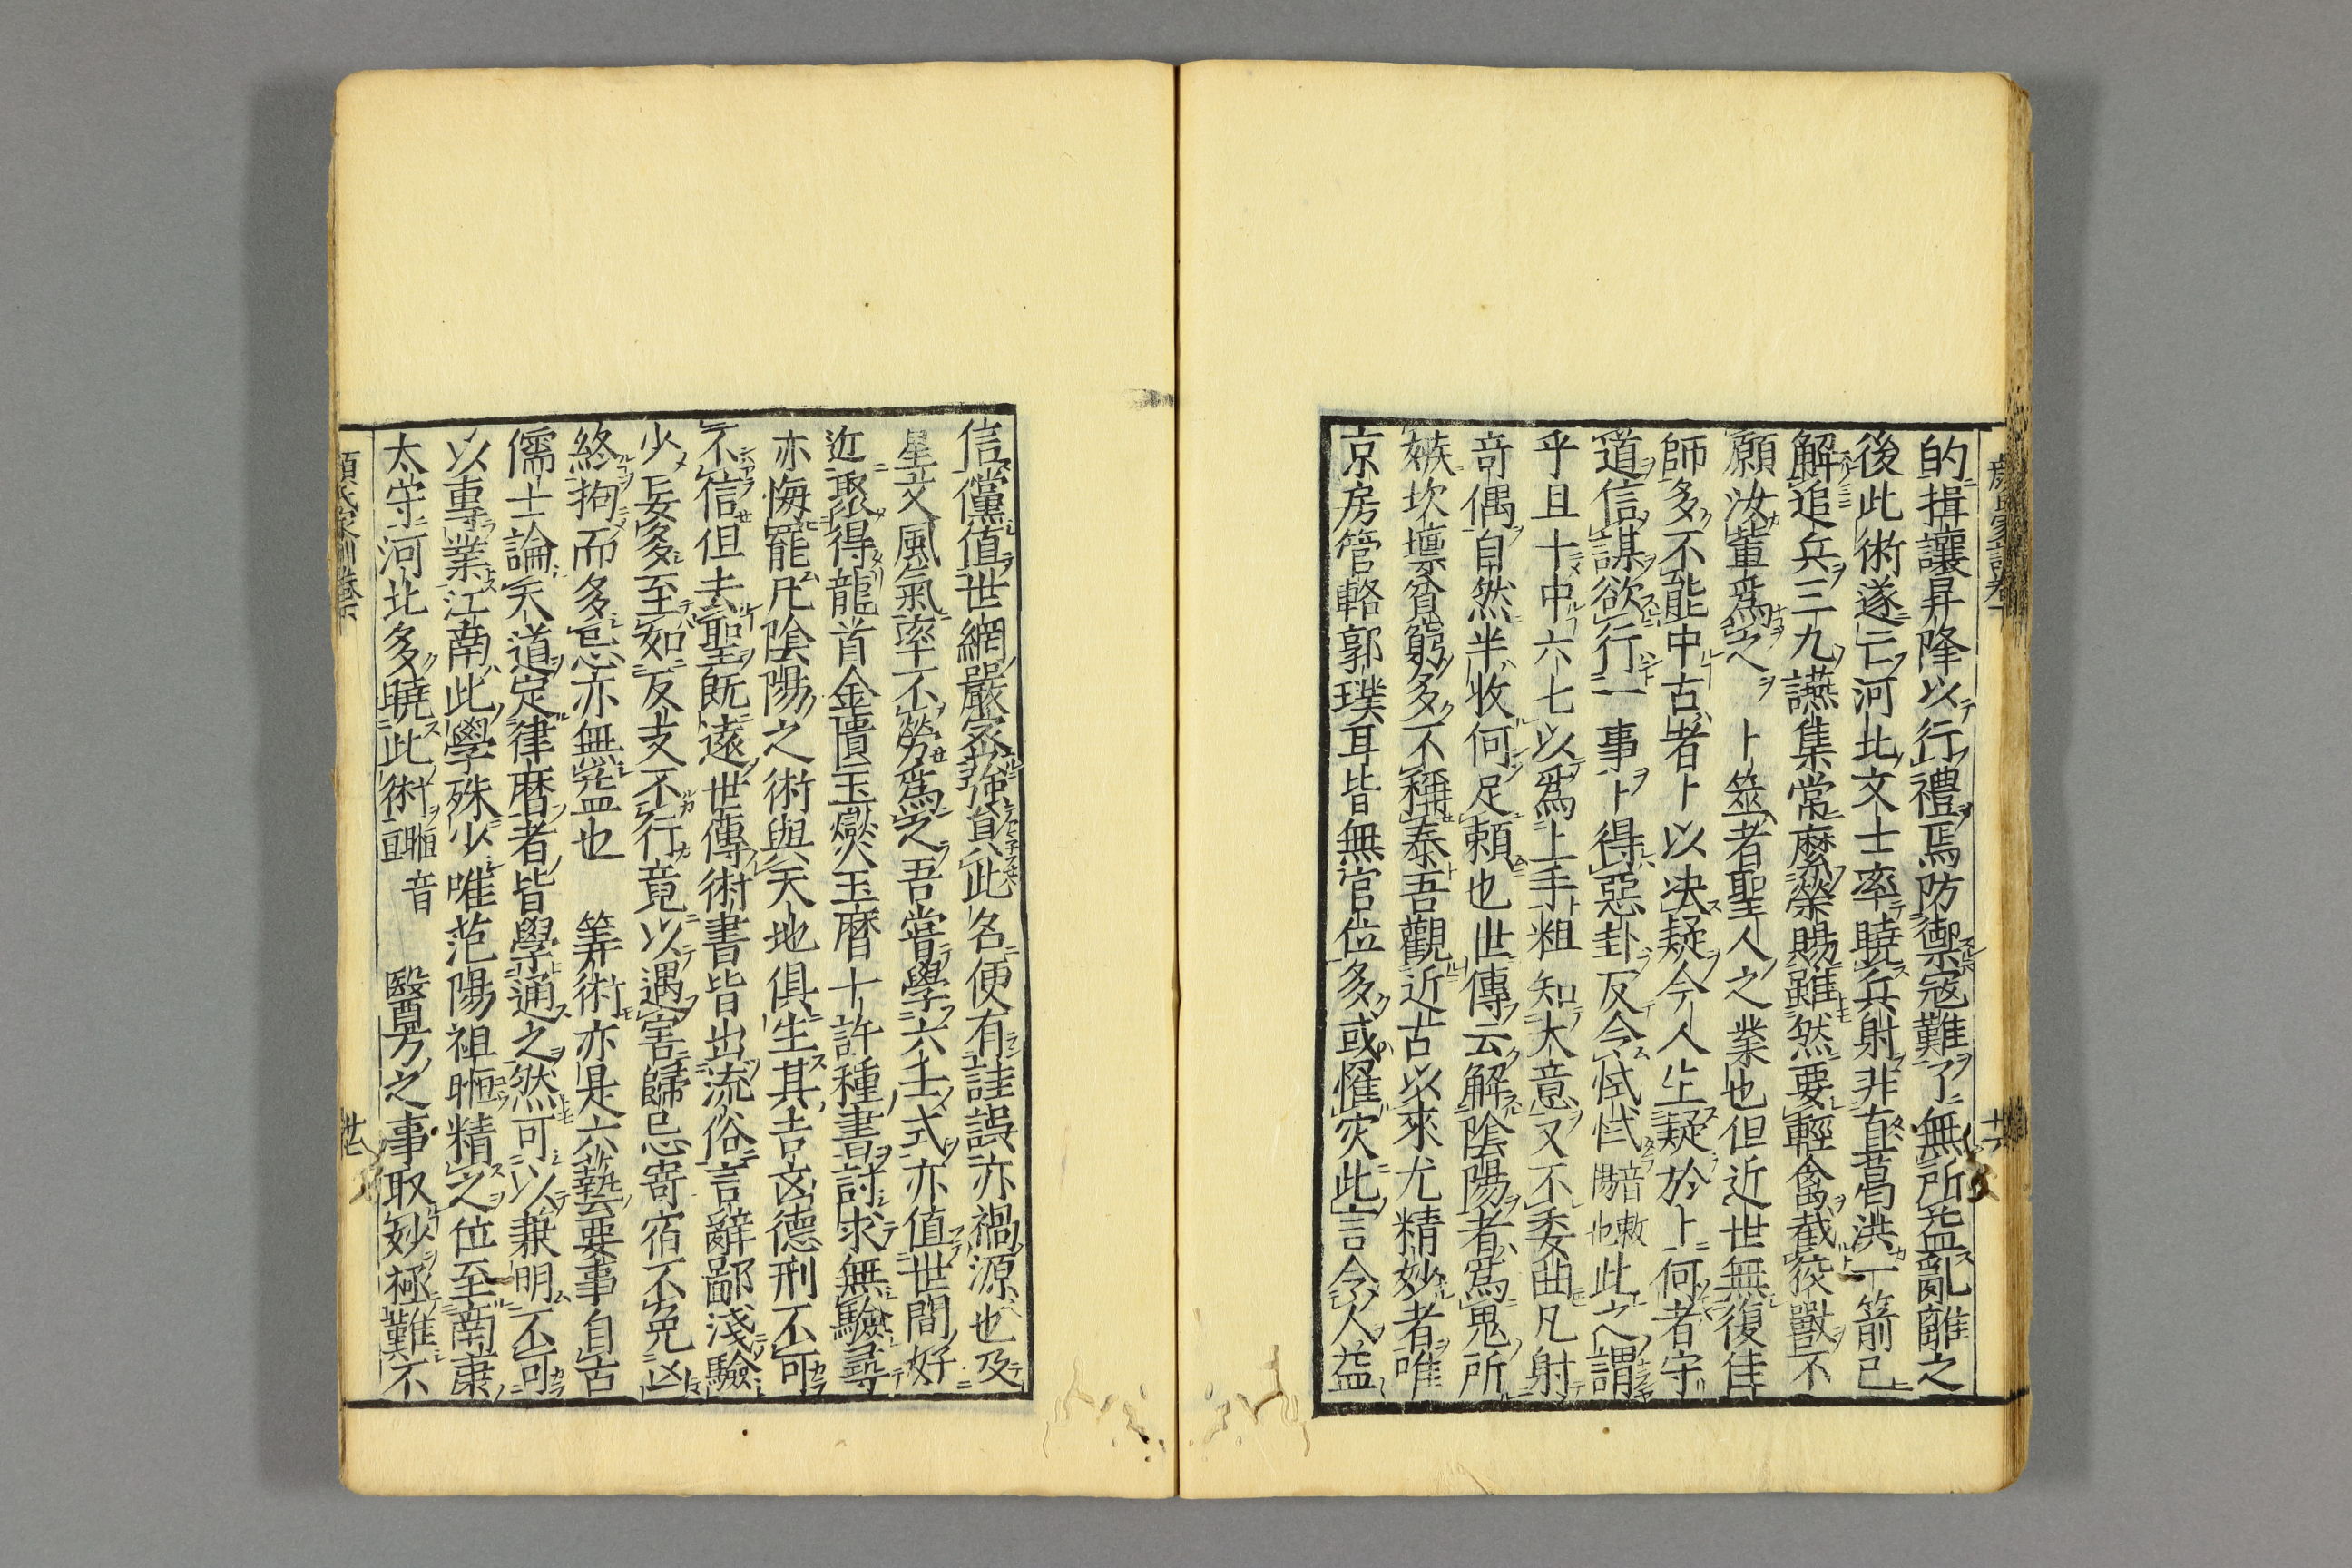 的揖讓昇降以行禮焉防禦寇難了無所益亂離之
後此術遂亡河北文士率曉兵射非直葛洪一箭已
解追兵三九讌集常縻榮賜雖然要輕禽截狡獸不
願汝輩爲之 卜筮者聖人之業也但近世無復佳
師多不能中古者卜以决疑今人生疑於卜何者守
道信謀欲行一事卜得惡卦反令怵怵 音敕 惕也 此之謂
乎且十中六七以爲上手粗知大意又不委曲凡射
奇偶自然半收何足賴也世傳云解陰陽者爲鬼所
嫉坎壈貧窮多不稱泰吾觀近古以來尤精妙者唯
京房管輅郭璞耳皆無官位多或罹灾此言令人益
信儻值世網嚴密強負此名便有詿誤亦禍源也及
星文風氣率不勞爲之吾嘗學六壬式亦值世間好
匠聚得龍首金匱玉燮玉曆十許種書討求無驗尋
亦悔罷凡陰陽之術與天地俱生其吉凶德刑不可
不信但去聖既遠世傳術書皆出流俗言辭鄙淺驗
少妄多至如反支不行竟以遇害歸忌寄宿不免凶
終拘而多忌亦無益也 筭術亦是六藝要事自古
儒士論天道定律曆者皆學通之然可以兼明不可
以專業江南此學殊少唯范陽祖暅精之位至南康
太守河北多曉此術 暅音亘 醫方之事取妙極難不
顏氏家訓卷下